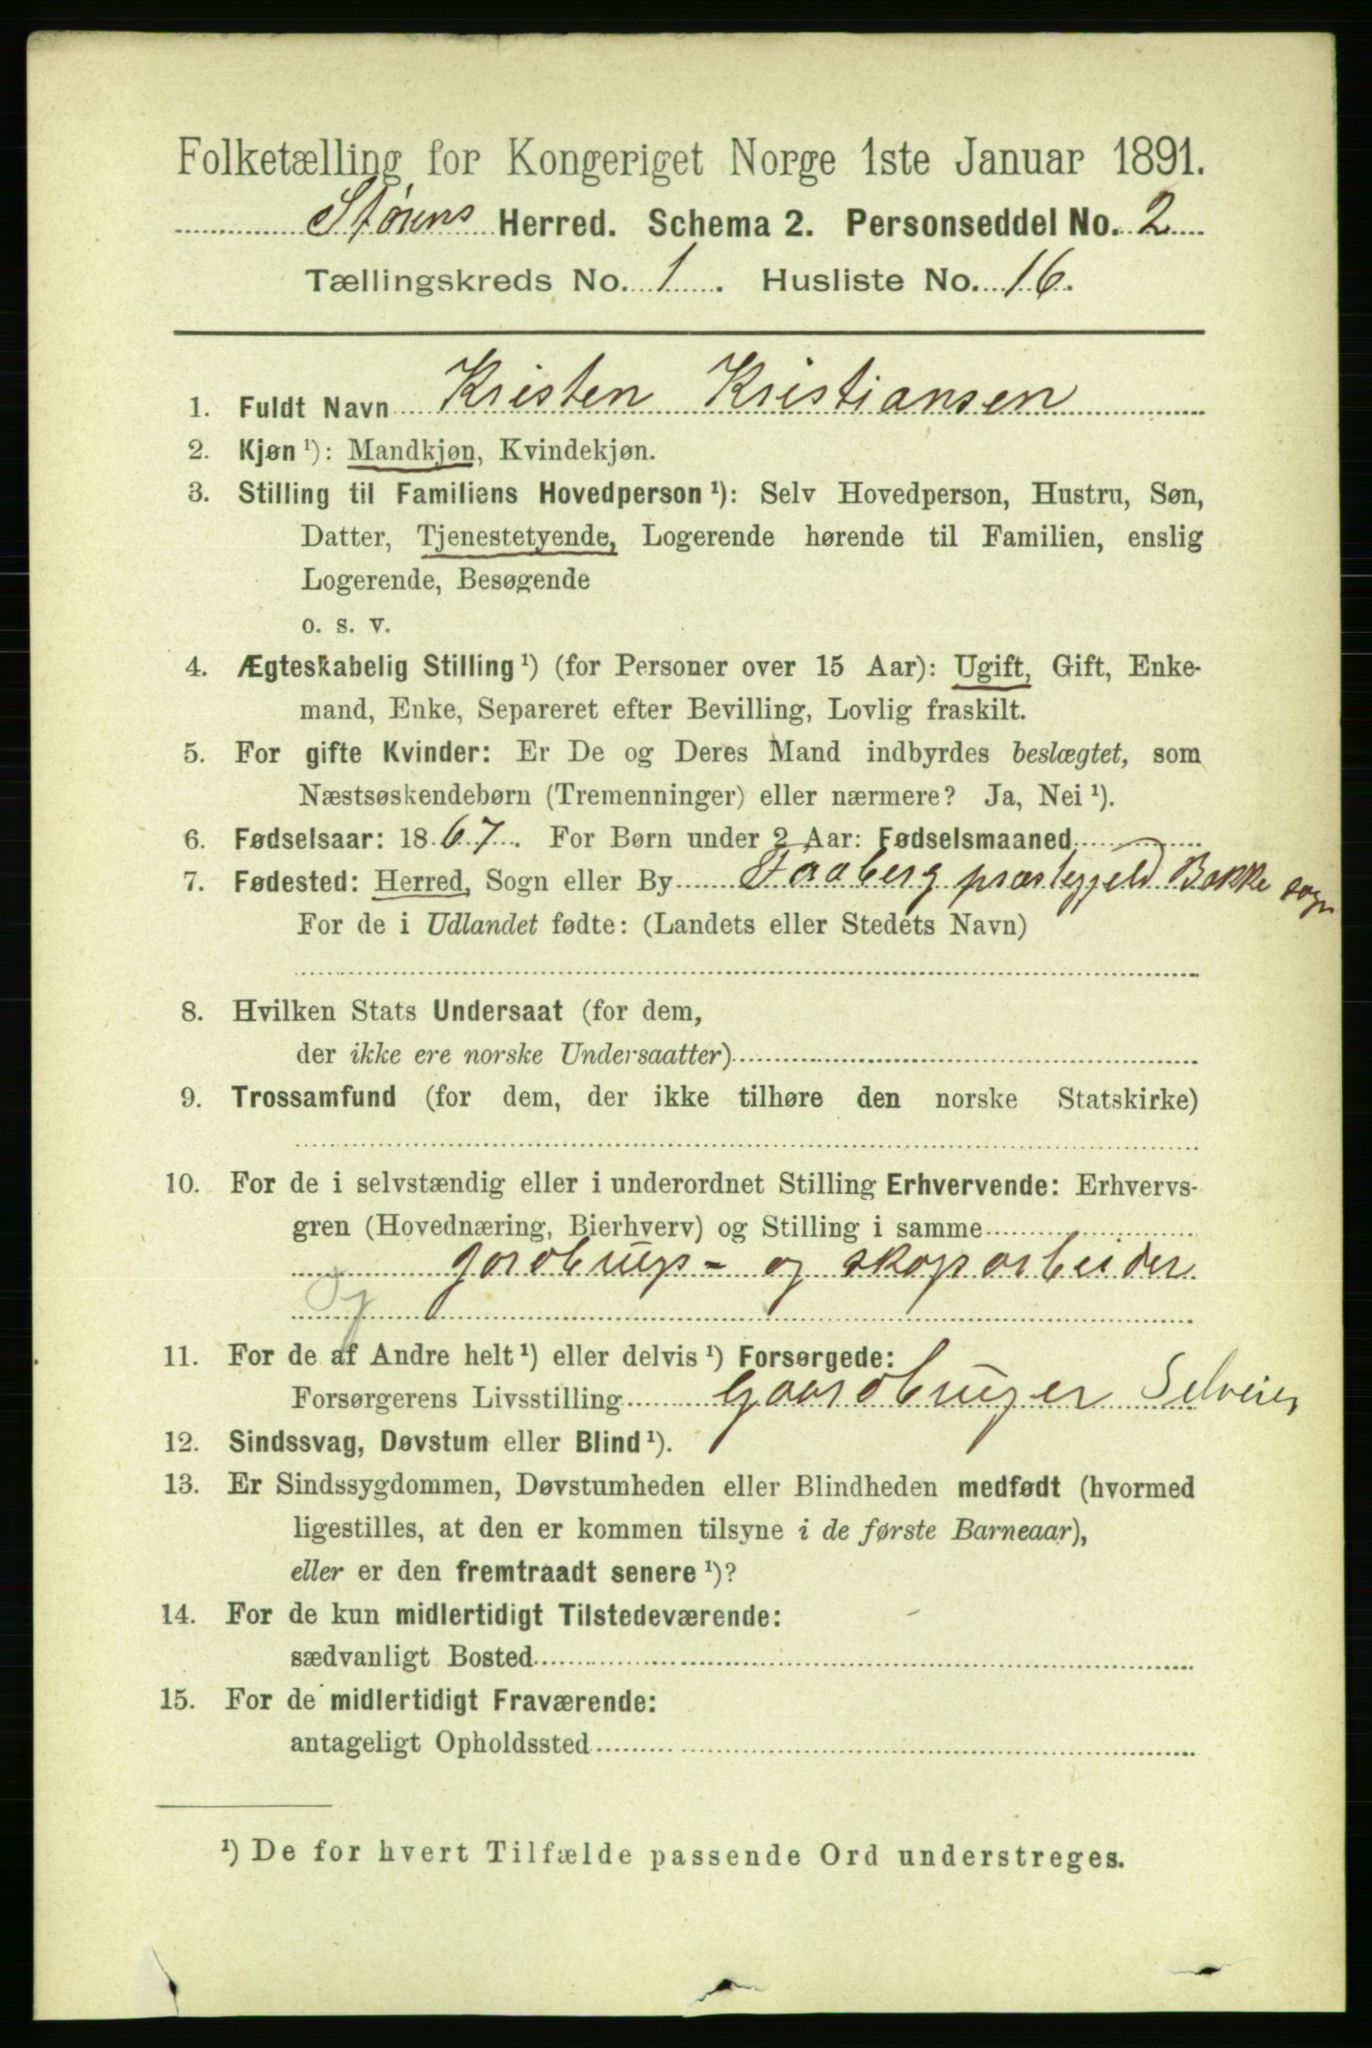 Folketælling for Kongeriget Norge 1ste Januar 1891.
Størens Herred. Schema 2. Personseddel No. 2
Tællingskreds No. 1. Husliste No. 16.
1. Fuldt Navn Kristen Kristiansen
2. Kjøn ¹): Mandkjøn, Kvindekjøn.
3. Stilling til Familiens Hovedperson ¹): Selv Hovedperson, Hustru, Søn,
Datter, Tjenestetyende, Logerende hørende til Familien, enslig
Logerende, Besøgende
o. s. v.
4. Ægteskabelig Stilling ¹) (for Personer over 15 Aar): Ugift, Gift, Enke-
mand, Enke, Separeret efter Bevilling, Lovlig fraskilt.
5. For gifte Kvinder: Er De og Deres Mand indbyrdes beslægtet, som
Næstsøskendebørn (Tremenninger) eller nærmere? Ja, Nei ¹).
6. Fødselsaar: 1867. For Børn under 2 Aar: Fødselsmaaned
7. Fødested: Herred, Sogn eller By Faaberg præstegjeld Bakke sogn
For de i Udlandet fødte: (Landets eller Stedets Navn)
8. Hvilken Stats Undersaat (for dem,
der ikke ere norske Undersaatter)
9. Trossamfund (for dem, der ikke tilhøre den norske Statskirke)
10. For de i selvstændig eller i underordnet Stilling Erhvervende: Erhvervs-
gren (Hovednæring, Bierhverv) og Stilling i samme
gardbrugs- og skogarbeider
11. For de af Andre helt ¹) eller delvis ¹) Forsørgede:
Forsørgerens Livsstilling Gaardbruger Selveier
12. Sindssvag, Døvstum eller Blind ¹).
13. Er Sindssygdommen, Døvstumheden eller Blindheden medfødt (hvormed
ligestilles, at den er kommen tilsyne i de første Barneaar),
eller er den fremtraadt senere ¹)?
14. For de kun midlertidigt Tilstedeværende:
sædvanligt Bosted
15. For de midlertidigt Fraværende:
antageligt Opholdssted
¹) De for hvert Tilfælde passende Ord understreges.